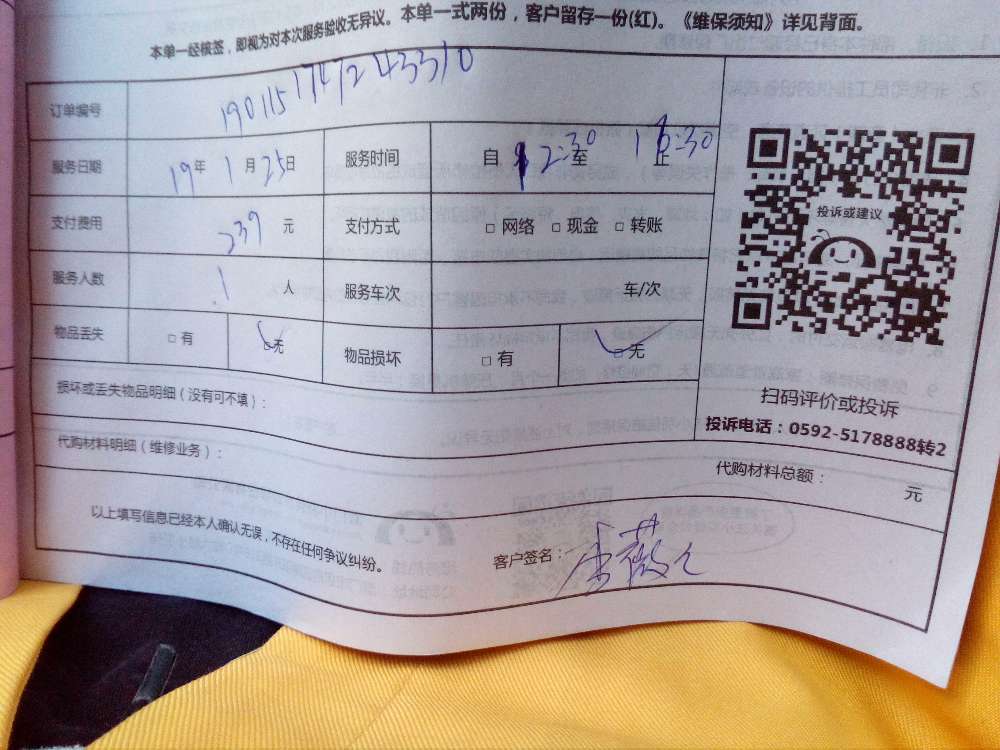 本单一经核签，即视为对本次服务验收无异议。本单一式两份，客户留存一份(红)。《维保须知》详见背面。
订单编号 19011517472433310
服务日期 19年 1月 25日 服务时间 自 12:30 至 16:30 止
支付费用 239 元 支付方式 □ 网络 □ 现金 □ 转账
服务人数 1 人 服务车次 车/次
物品丢失 □ 有 □ 无 物品损坏 □ 有 □ 无
损坏或丢失物品明细（没有可不填）：
代购材料明细（维修业务）：
代购材料总额： 元
以上填写信息已经本人确认无误，不存在任何争议纠纷。
客户签名：
投诉或建议
扫码评价或投诉
投诉电话：0592-5178888转2